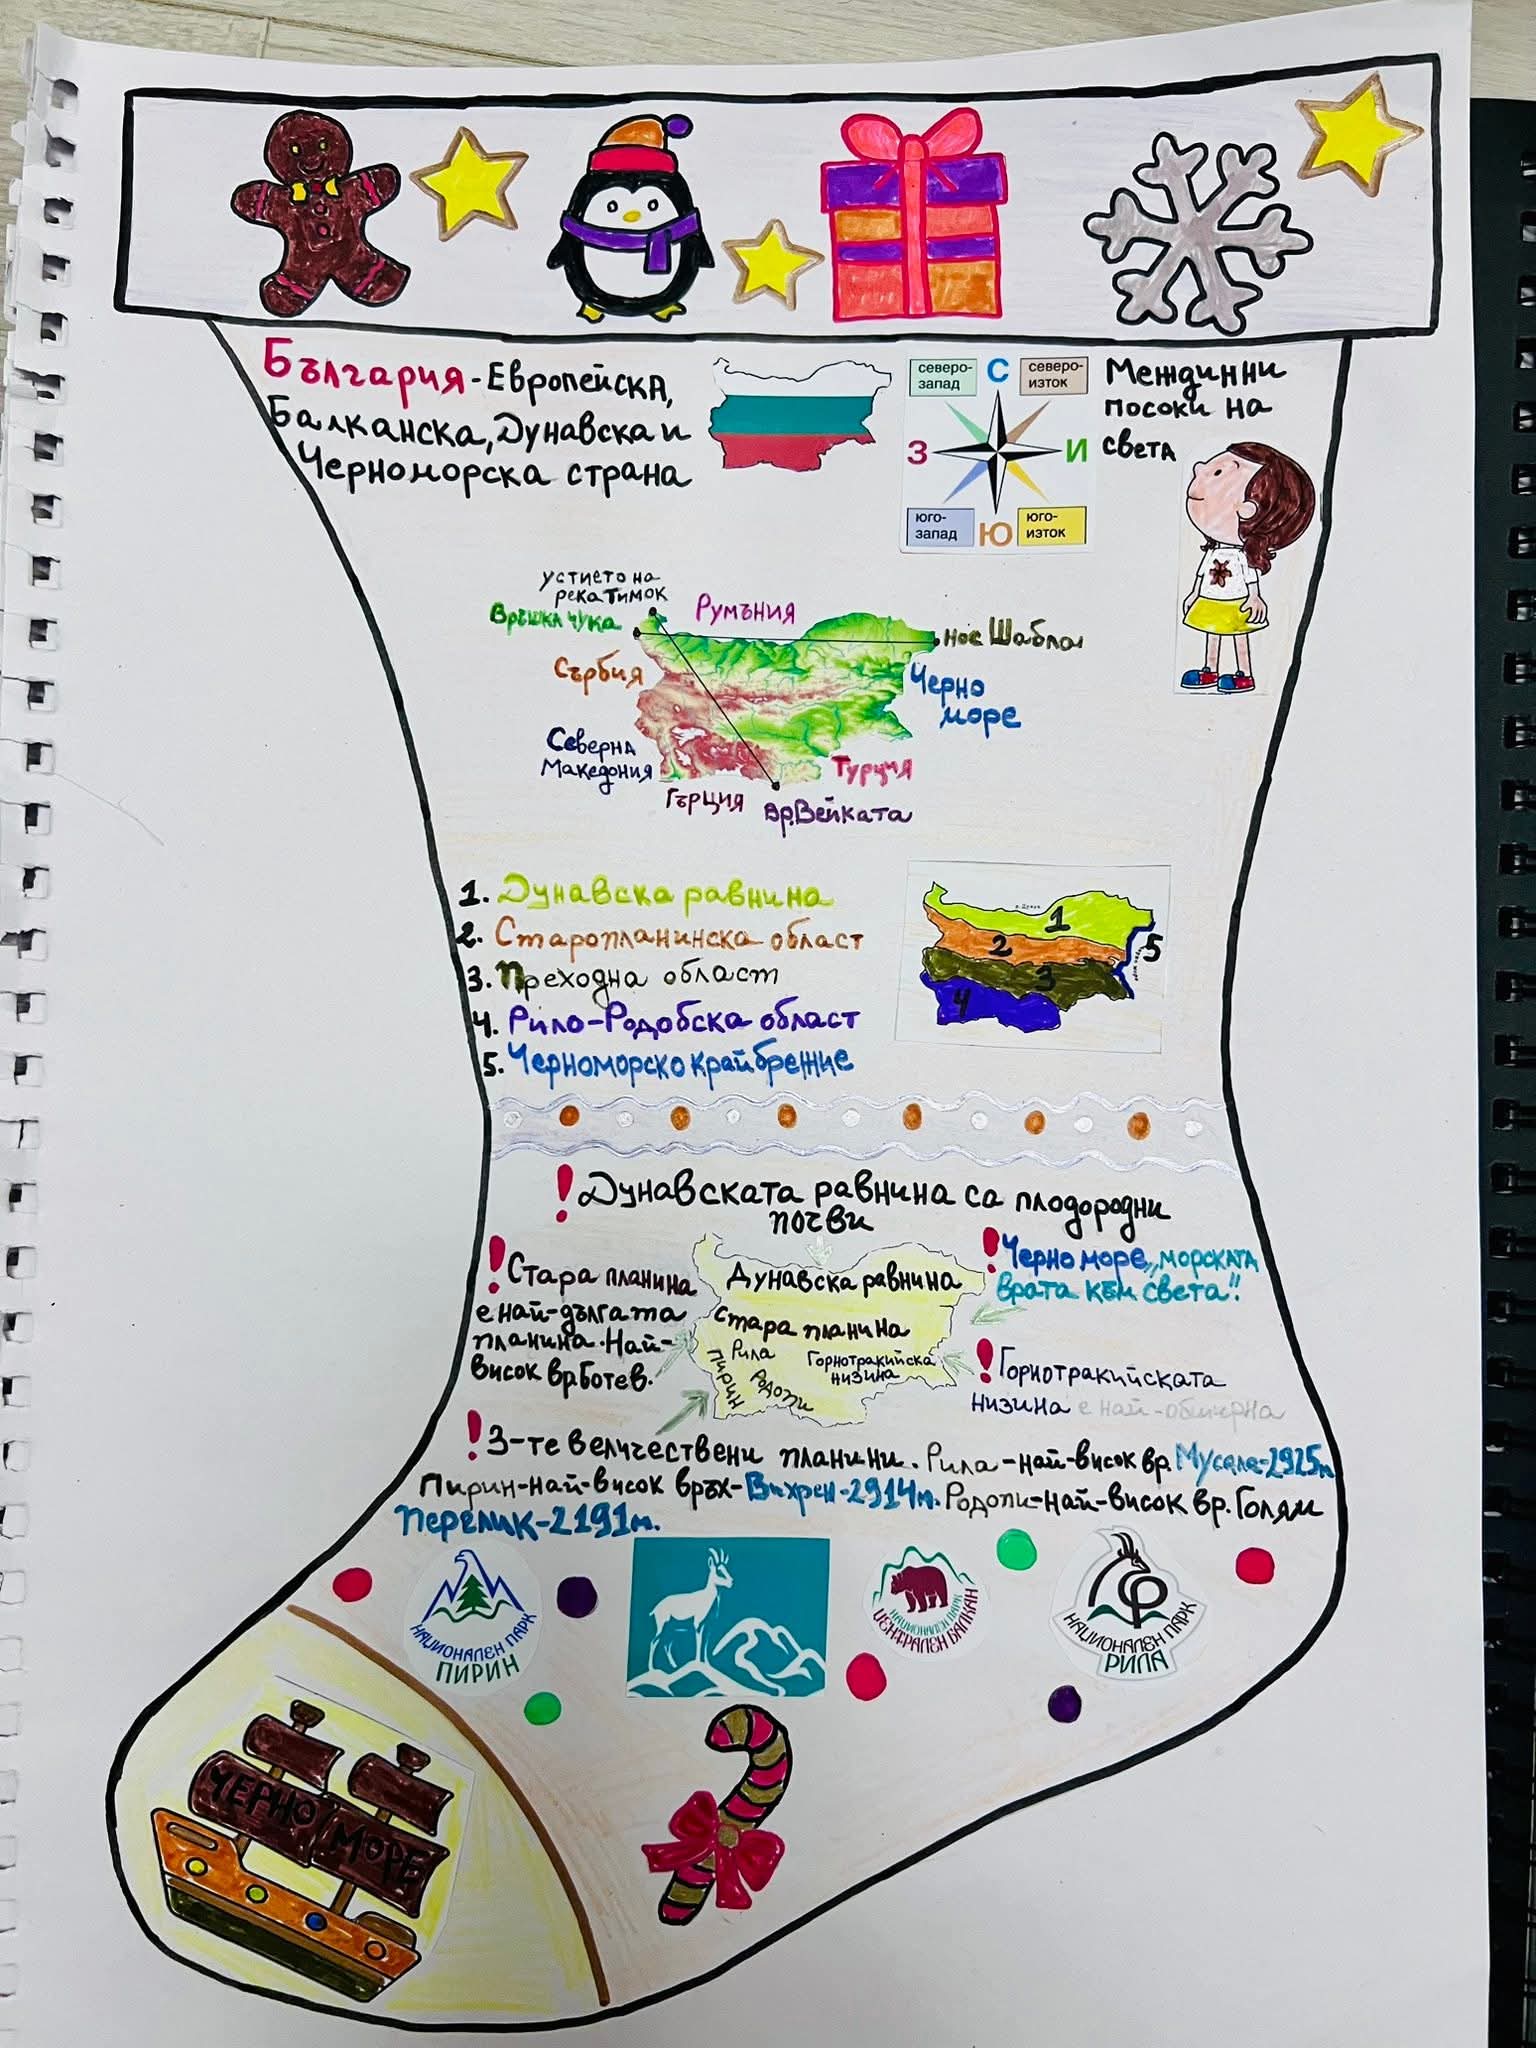 България-Европейска,
Балканска, Дунавска и
Черноморска страна
северо-
запад
С
северо-
изток
З
И
юго-
запад
Ю
юго-
изток
Междинни
посоки на
света
устието на
река Тимок
Връшка чука
Румъния
нос Шабла
Сърбия
Черно
море
Северна
Македония
Турция
Гърция
вр.Вейката
1. Дунавска равнина
2. Старопланинска област
3. Преходна област
4. Рило-Родобска област
5. Черноморско крайбрежие
1
2
3
4
5
! Дунавската равнина са плодородни
почви
! Стара планина
е най-дългата
планина. Най-
висок вр.Ботев.
Дунавска равнина
Стара планина
Рила
Пирин
Родопи
Горнотракийска
низина
! Черно море „морската
врата към света"!
! Горнотракийската
низина е най-обширна
! 3-те величествени планини. Рила-най-висок вр. Мусала-2925м
Пирин-най-висок връх-Вихрен-2914м. Родопи-най-висок вр. Голям
Перелик-2191м.
НАЦИОНАЛЕН ПАРК
ПИРИН
НАЦИОНАЛЕН ПАРК
ЦЕНТРАЛЕН БАЛКАН
НАЦИОНАЛЕН ПАРК
РИЛА
ЧЕРНО МОРЕ